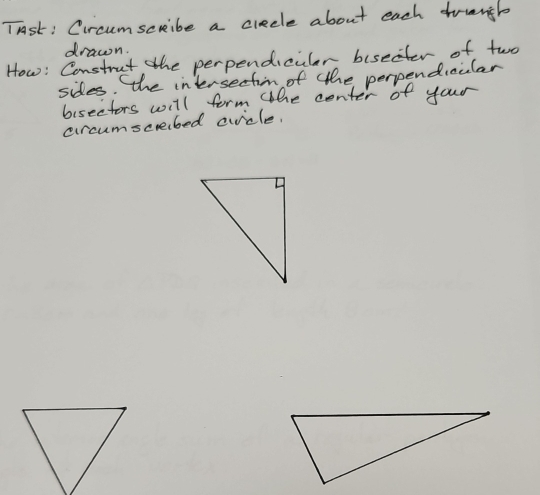 Task: Circumscribe a circle about each
drawn.
How: Construt the perpendicular bisecter of two
sides. The intersection of the perpendicular
bisectors will form the center of your
circumscribed circle.